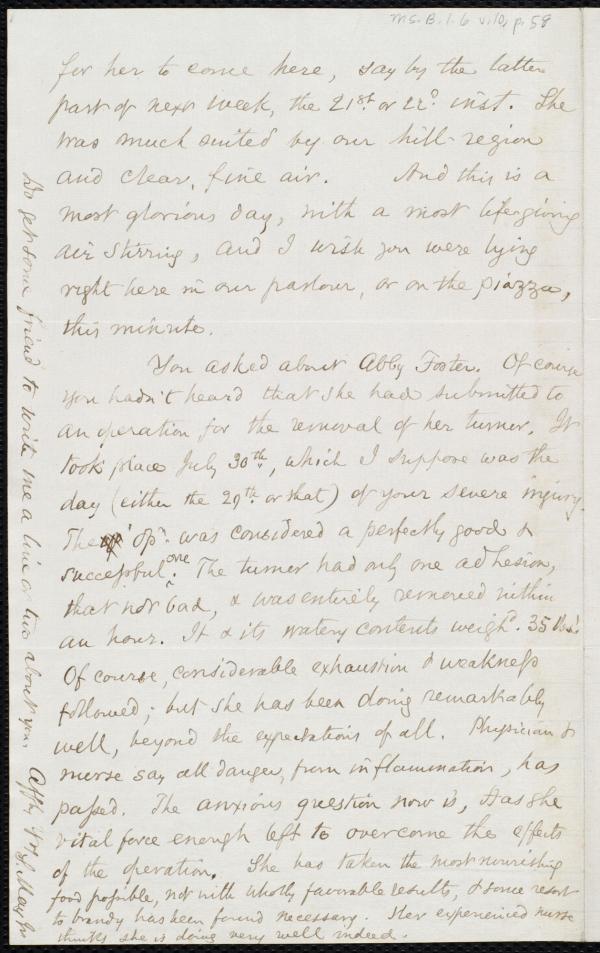 Ms. B. 1. 6 v.10, p. 58
for her to come here, say by the latter
part of next week, the 21st. or 22d. inst. She
was much suited by our hill-region
and clear, fine air. And this is a
most glorious day, with a most life-giving
air stirring, and I wish you were lying
right here in our parlour, or on the piazza,
this minute.
You asked about Abby Foster. Of course
you hadn't heard that she had submitted to
an operation for the removal of her tumor. It
took place July 30th., which I suppose was the
day (either the 29th. or that) of your severe injury.
The op'n. was considered a perfectly good &
successful one. The tumor had only one adhesion,
that not bad, & was entirely removed within
an hour. It & its watery contents weigh'd. 35 lbs.!
Of course, considerable exhaustion & weakness
followed; but she has been doing remarkably
well, beyond the expectations of all. Physician &
nurse say all danger, from inflammation, has
passed. The anxious question now is, Has she
vital force enough left to overcome the effects
of the operation. She has taken the most nourishing
food possible, not with wholly favorable results, & some resort
to brandy has been found necessary. Her experienced nurse
thinks she is doing very well indeed.
Do get some friend to write me a line or two about you. Affy. S. May Jr.